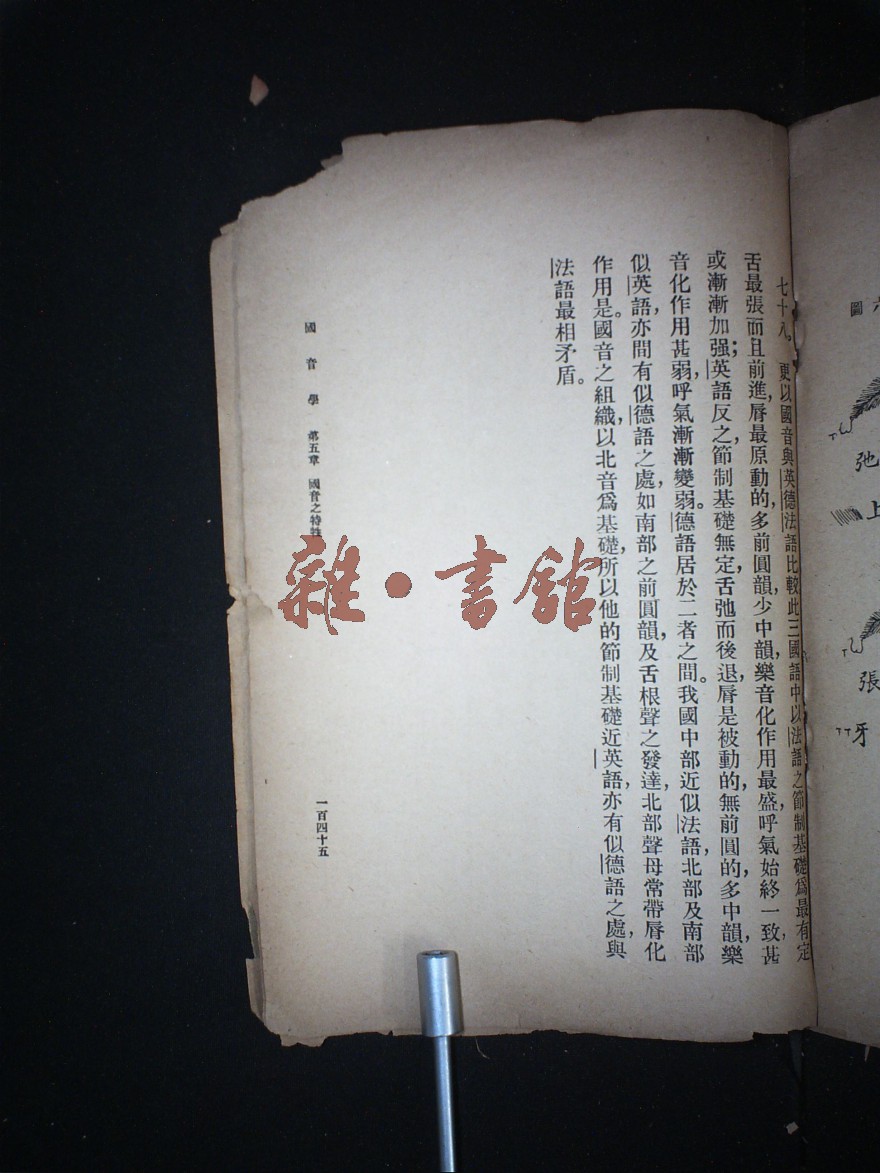 七十八, 更以國音與英德法語比較此三國語中以法語之節制基礎爲最有定,
舌最張而且前進,脣最原動的,多前圓韻,少中韻,樂音化作用最盛,呼氣始終一致甚
或漸漸加强;英語反之,節制基礎無定,舌弛而後退,脣是被動的,無前圓的,多中韻,樂
音化作用甚弱,呼氣漸漸變弱。德語居於二者之間。我國中部近似法語,北部及南部
似英語,亦間有似德語之處,如南部之前圓韻,及舌根聲之發達,北部聲母常帶脣化
作用是。國音之組織,以北音爲基礎,所以他的節制基礎近英語,亦有似德語之處,與
法語最相矛盾。
國音學 第五章 國音之特
一百四十五
雜·書館
圖
弛
上
張
牙